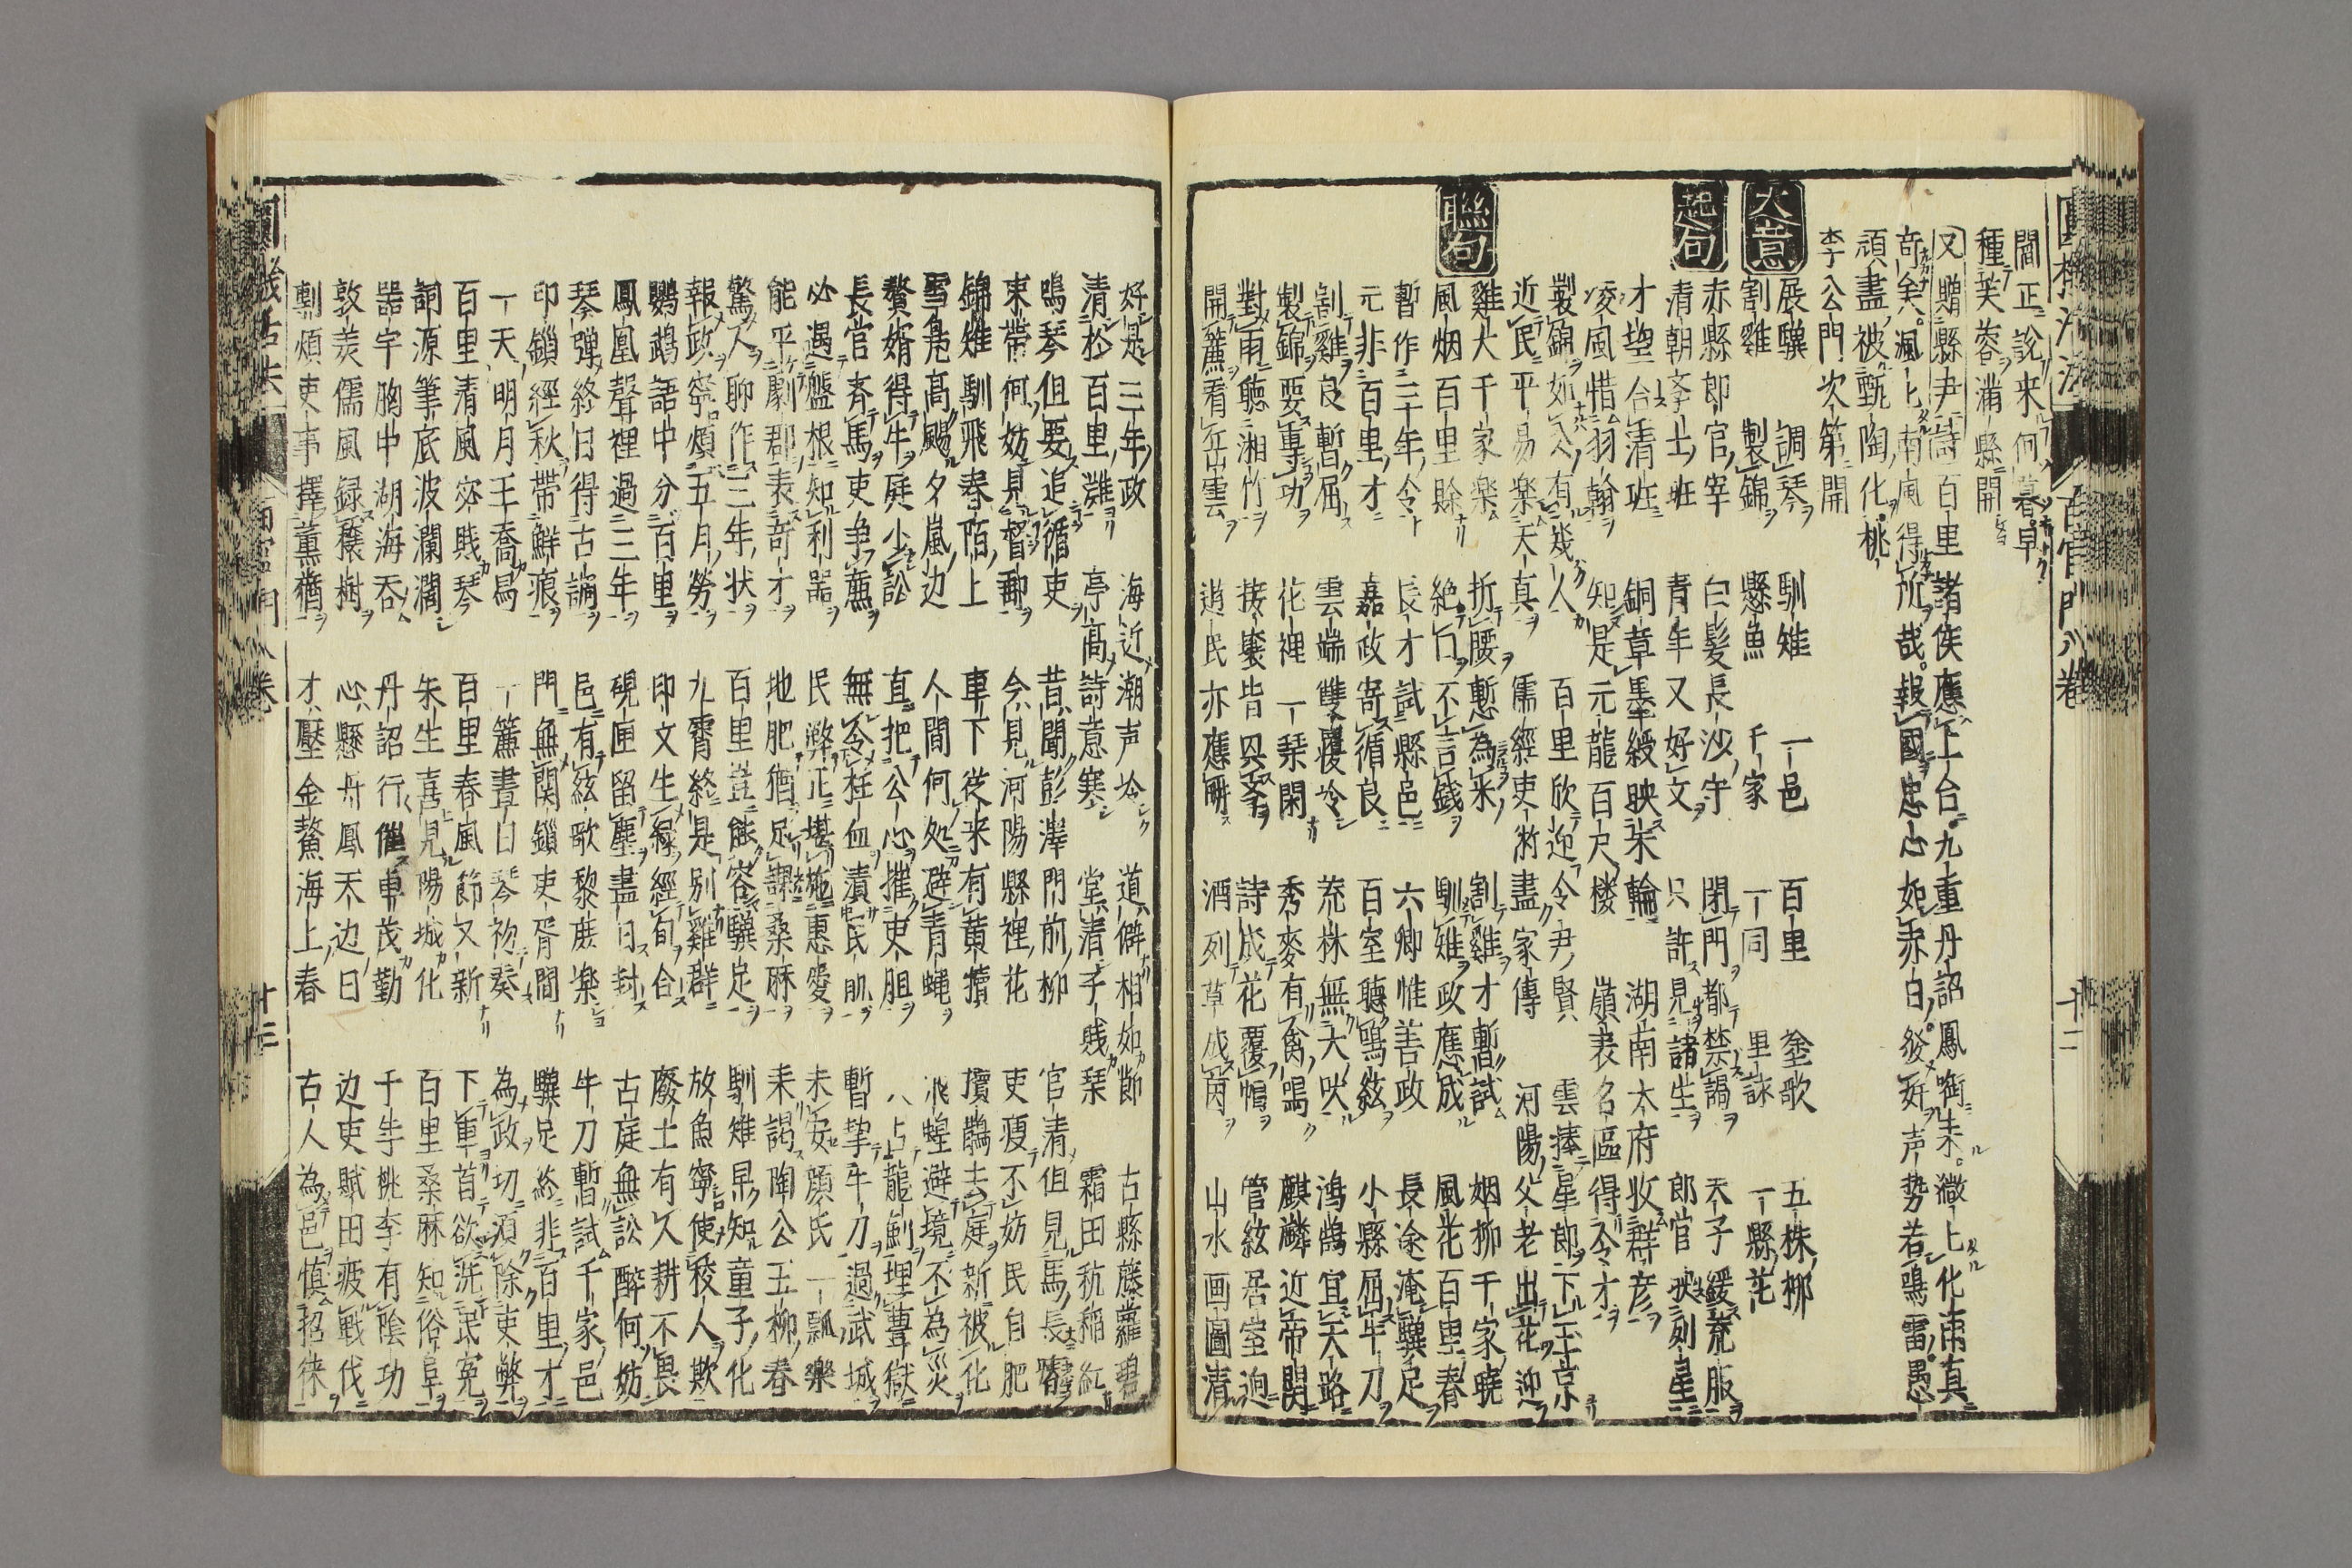 圓機活法 百官門八卷 十二
閭正說来何暮早
種芙蓉滿縣開
又 贈縣尹詩 百里諸侯應上台九重丹詔鳳啣朱徽上化車真
奇矣諷上南風得所哉報國忠心如赤白發奸声勢若鳴雷愚
頑盡被甄陶化桃
李公門次第開
大意
展驥 調琴 馴雉 一邑 百里 奎歌 五株柳
割雞 製錦 懸魚 千家 一同 里詠 一縣花
起句
赤縣郎官宰 白髮長沙守 閉門都禁謁 天子緩荒服
清朝孝士班 青年又好文 只許見諸生 郎官映列星
才堂合清班 銅章墨綬映朱輪 湖南太府收群彦
凌風惜羽翰 知是元龍百尺楼 嶺表名區得令才
製錦如久有幾人 百里欣迎令尹賢 雲捧星郎下玉京
近民平易楽天真 儒經吏術盡家傳 河陽父老出花迎
聯句
雞犬千家楽 折腰慙為米 割雞才暫試 烟柳千家曉
風烟百里賖 絶口不言錢 馴雉政應成 風花百里春
暫作三年令 長才試縣邑 六卿惟善政 長途淹驥足
元非百里才 嘉政寄循良 百室聴鳴絃 小縣屈牛刀
割雞良暫屈 雲端雙覆冷 荒林無犬吠 鴻鵠宜天路
製錦要専功 花裡一琹閑 秀麥有禽鳴 麒麟近帝関
對雨聴湘竹 接褰皆具香 詩成花覆帽 管絃居室逈
開簾看岳雲 逍民亦應耕 酒列草成茵 山水画圖清
好是三年政 海近潮声冷 道僻相如節 古縣藤蘿碧
清於百里灘 亭高詩意寒 堂清子賎琹 霜田秔稲紅
鳴琴但要追循吏 昔聞彭澤門前柳 官清但見馬長瘠
束帯何妨見督郵 今見河陽縣裡花 吏瘦不妨民自肥
錦雉馴飛春陌上 車下従来有黄犢 擯鵲去庭新被化
雪鳧高颺夕嵐边 人間何処避青蝿 飛蝗避境不為災
贅婿得牛庭少訟 直把公心摧吏胆 八占龍劔埋豊獄
長官斉馬吏争薦 無令枉血漬民肌 暫挚牛刀過武城
必遇盤根知利器 民弊正堪施惠愛 未安顔氏一瓢樂
能平劇郡表奇才 地肥猶足課桑麻 来謁陶公五柳春
驚人聊作三年状 百里豈能容驥足 馴雉早知童子化
報政寧煩五月勞 九霄終是別雞群 放魚寧使校人欺
鸚鵡語中分百里 印文生緑經旬合 廢土有久耕不畏
鳳凰聲裡過三年 硯匣留塵盡日封 古庭無訟醉何妨
琴弾終日得古調 邑有絃歌黎庶楽 牛刀暫試千家邑
印鎖經秋帯鮮痕 門無関鎖吏胥間 驥足終非百里才
一天明月王喬舃 一簾晝日琴初奏 為政切須除吏弊
百里清風宓賎琴 百里春風節又新 下車首欲洗民冤
詞源筆底波瀾濶 朱生喜見陽城化 百里桑麻知俗阜
器宇胸中湖海吞 丹詔行催卓茂勤 千生桃李有陰功
敦美儒風録穰樹 心懸丹鳳天边日 边吏賦田疲戦伐
剸煩吏事擇薫蕕 才壓金鰲海上春 古人為邑慎招徕
圓機活法 百官門八卷 十三